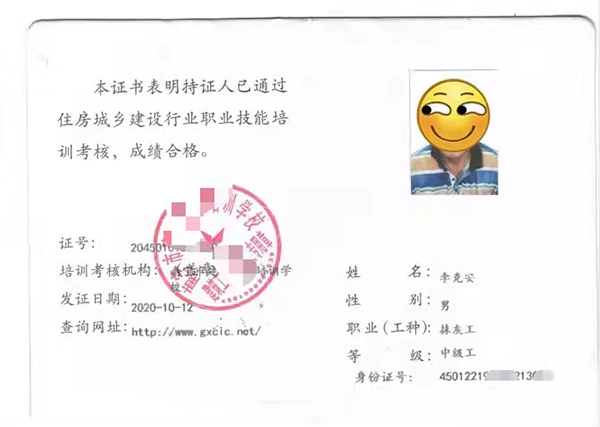 本证书表明持证人已通过
住房城乡建设行业职业技能培
训考核，成绩合格。
训学校
证号： 2045010
培训考核机构： 培训学
校
发证日期： 2020-10-12
查询网址：http://www.gxcic.net/
姓 名： 李克安
性 别： 男
职业（工种）： 抹灰工
等 级： 中级工
身份证号： 45012219 213